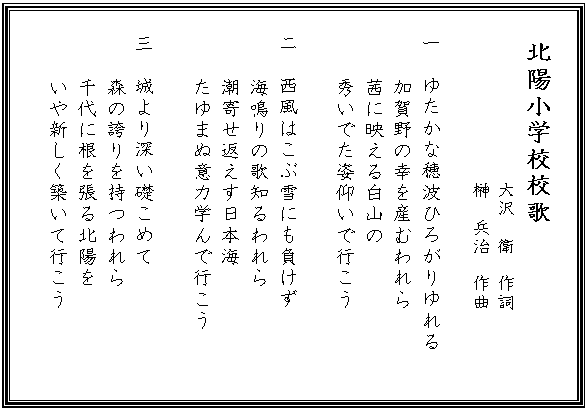 北陽小学校校歌
大沢　衛　作詞
榊　兵治　作曲
一　ゆたかな穂波ひろがりゆれる
加賀野の幸を産むわれら
茜に映える白山の
秀いでた姿仰いで行こう
二　西風はこぶ雪にも負けず
海鳴りの歌知るわれら
潮寄せ返えす日本海
たゆまぬ意力学んで行こう
三　城より深い礎こめて
森の誇りを持つわれら
千代に根を張る北陽を
いや新しく築いて行こう